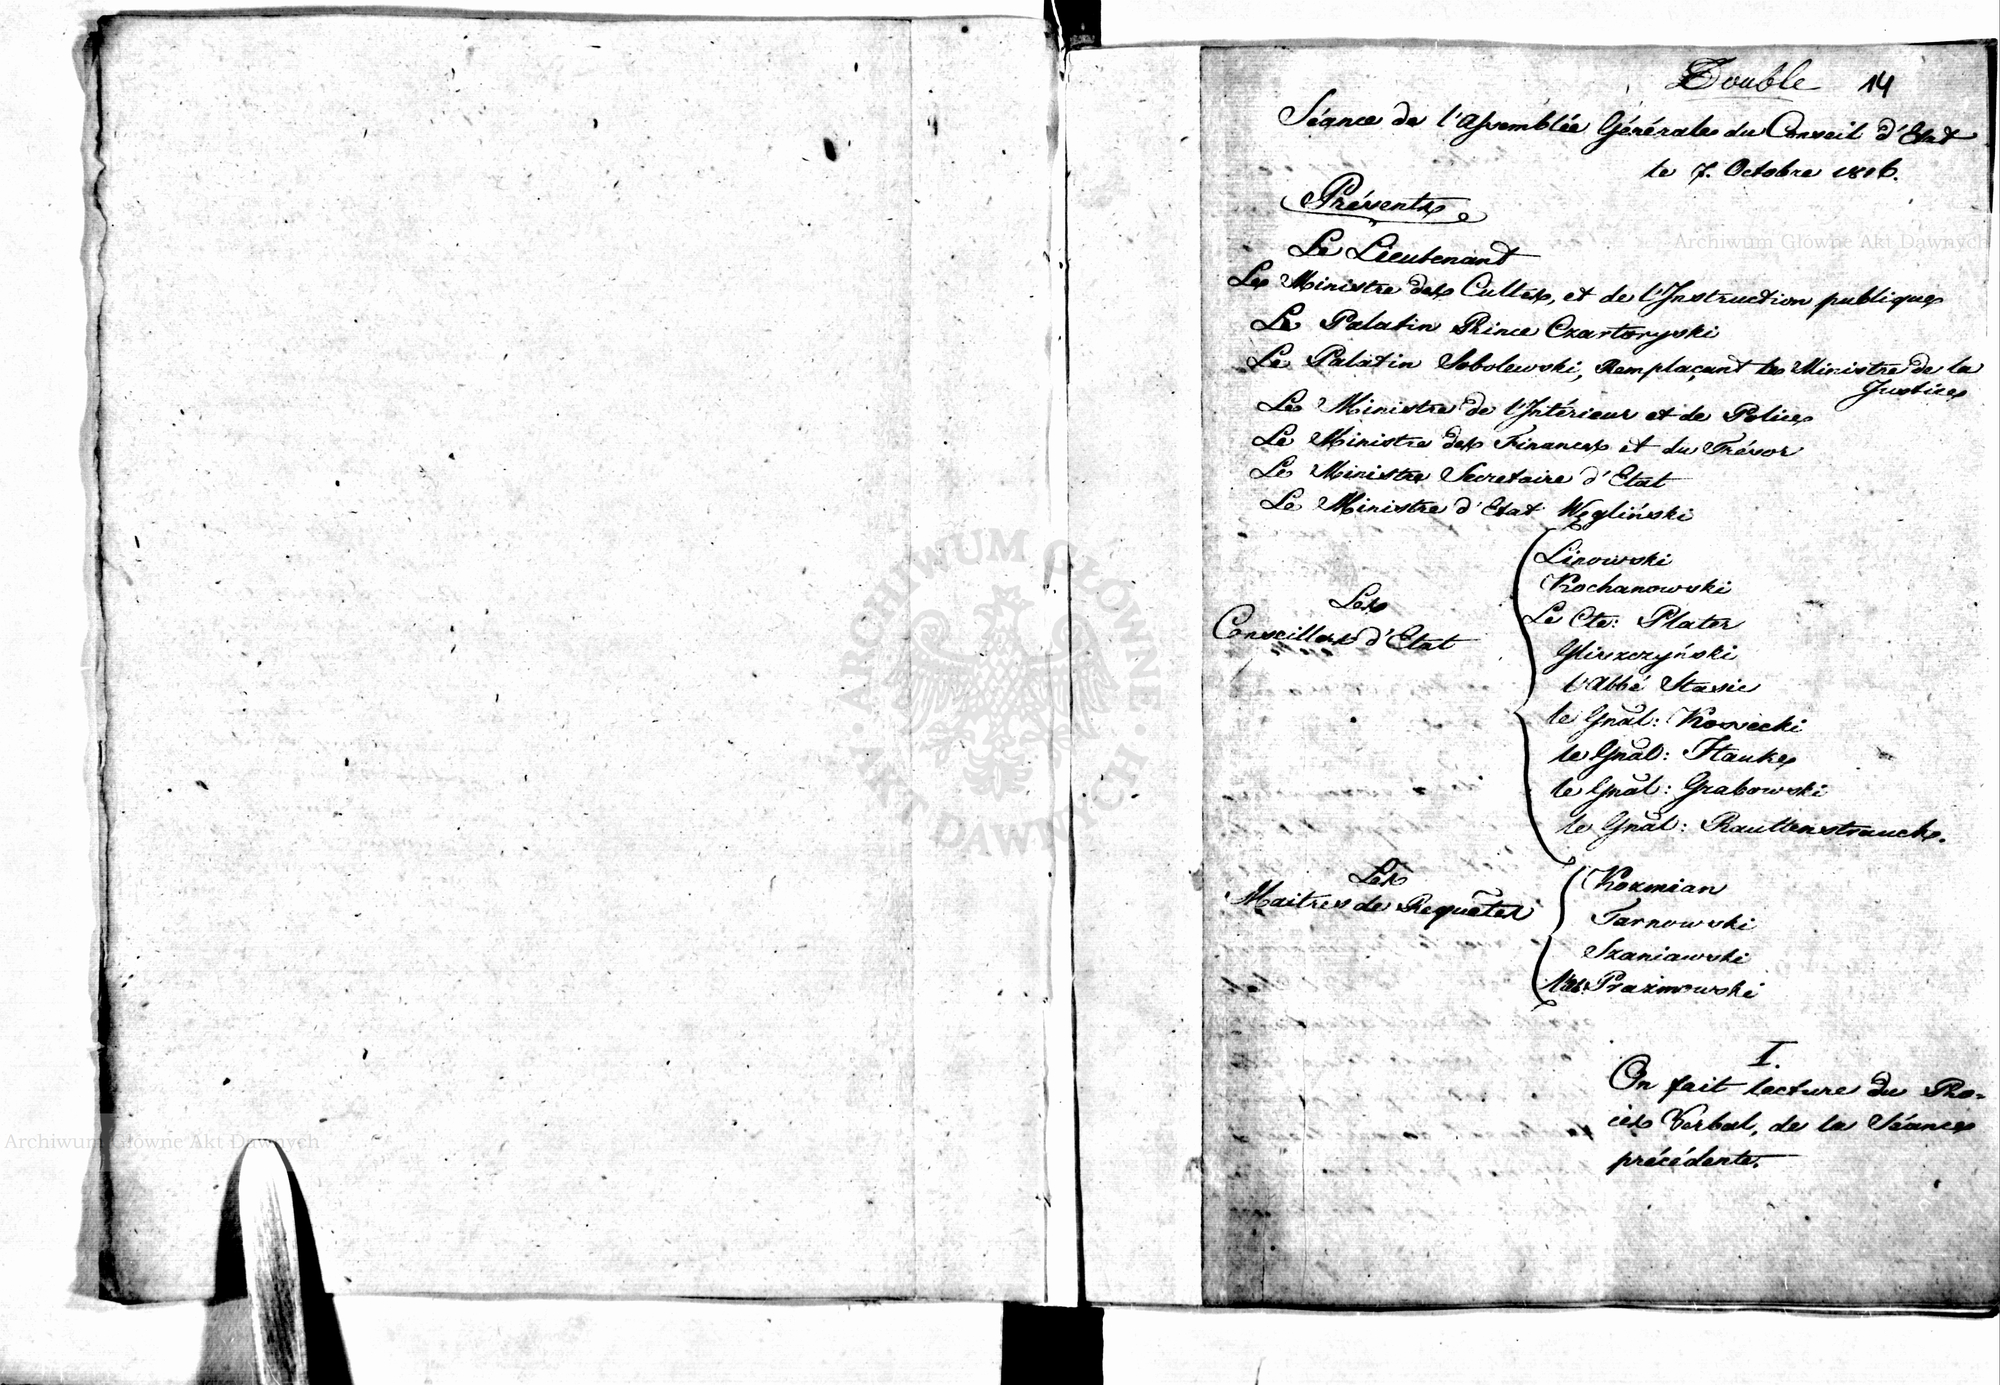 Double 14
Séance de l'Assemblée Générale du Conseil d'Etat
le 7. Octobre 1816.
Présents
Le Lieutenant
Le Ministre des Cultes, et de l'Instruction publique
Le Palatin Prince Czartoryski
Le Palatin Sobolewski, Remplaçant le Ministre de la
Justice
Le Ministre de l'Intérieur et de Police
Le Ministre des Finances et du Trésor
Le Ministre Secretaire d'Etat
Le Ministre d'Etat Węgliński
Les
Conseillers d'Etat
Linowski
Kochanowski
Le Cte: Plater
Gliszczyński
l'Abbé Stasic
le Gnal: Kossecki
le Gnal: Hauke
le Gnal: Grabowski
le Gnal: Rautenstrauch.
Les
Maitres de Requêtes
Kozmian
Tarnowski
Szaniawski
Prazmowski
I.
On fait lecture du Pro-
ces Verbal, de la Séance
précédente.
Archiwum Główne Akt Dawnych
Archiwum Główne Akt Dawnych
ARCHIWUM GŁÓWNE · AKT DAWNYCH ·